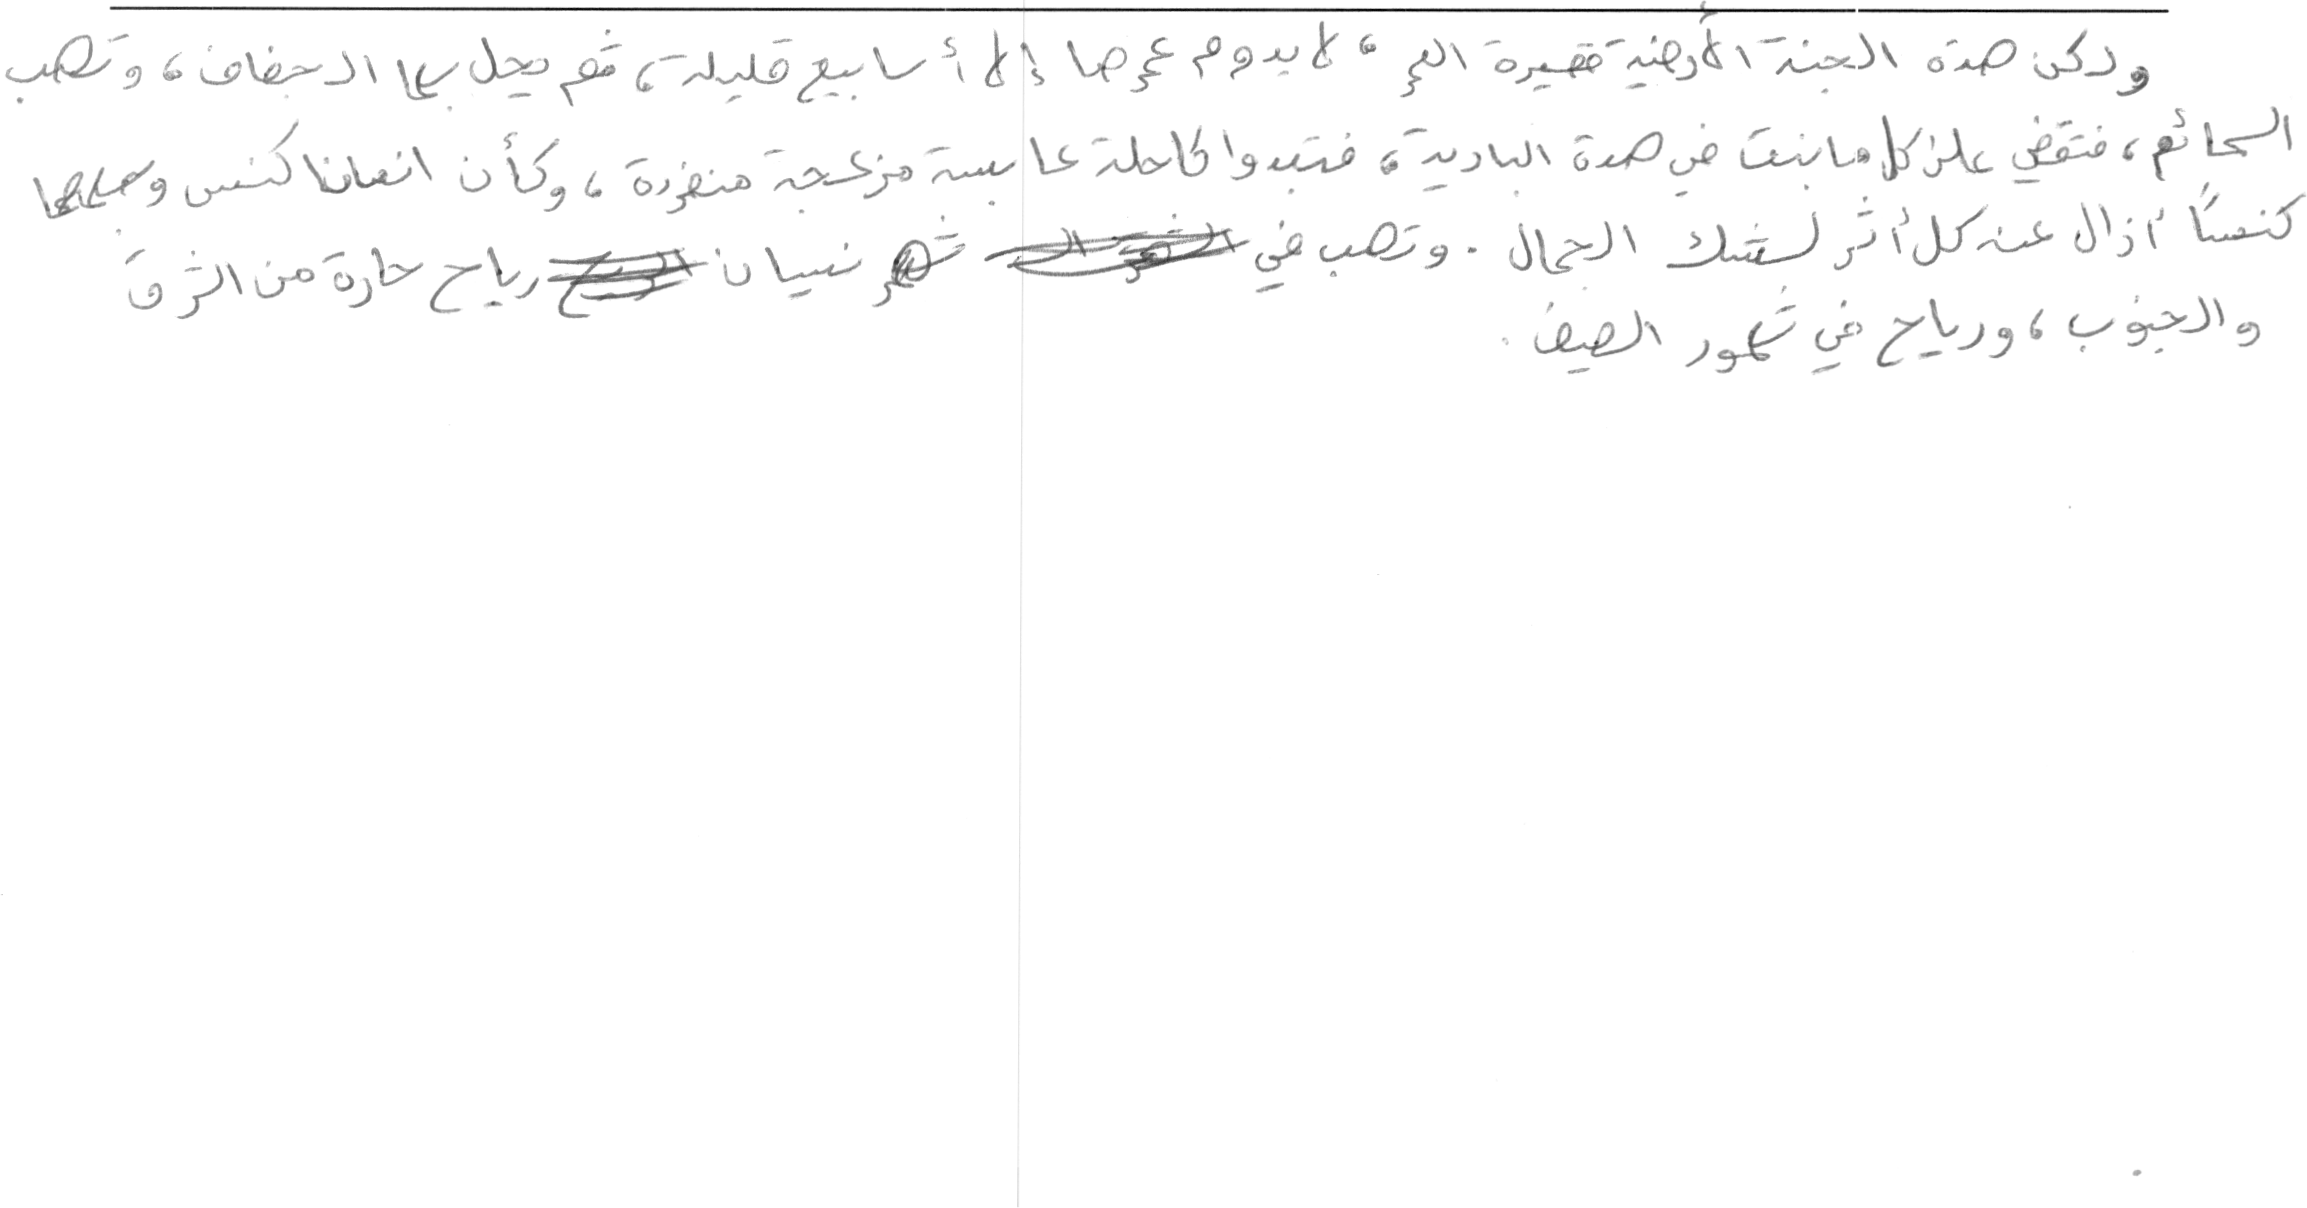 ولكن هذة الجنة الأرضية قصيرة العمر، لا يدوم عمرها إلا أسابيع قليلة، ثم يحل بها الجفاف، وتهب
السمائم، فتقضي على كل ما نبت في هذة البادية، فتبدوا كاحلة عابسة مزعجة منفردة، وكأن انسانا كنس وجهها
كنسًا أزال عنه كل أثر لذلك الجمال. وتهب في شهر نيسان رياح حارة من الشرق
والجنوب، ورياح في شهور الصيف.